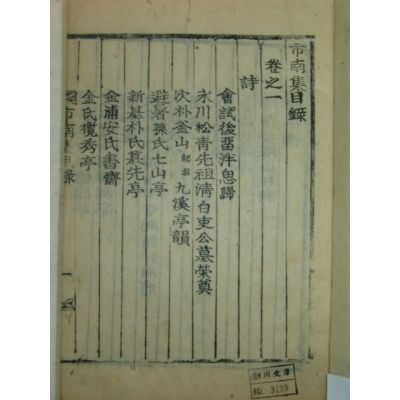 市南集目錄
卷之一
詩
會試後留泮思歸
永川松青先祖淸白吏公墓榮奠
次朴釜山 九溪亭韻
避暑孫氏七山亭
新基朴氏慕先亭
金浦安氏書齋
金氏攬秀亭
市南 目錄 一
川文庫
3139